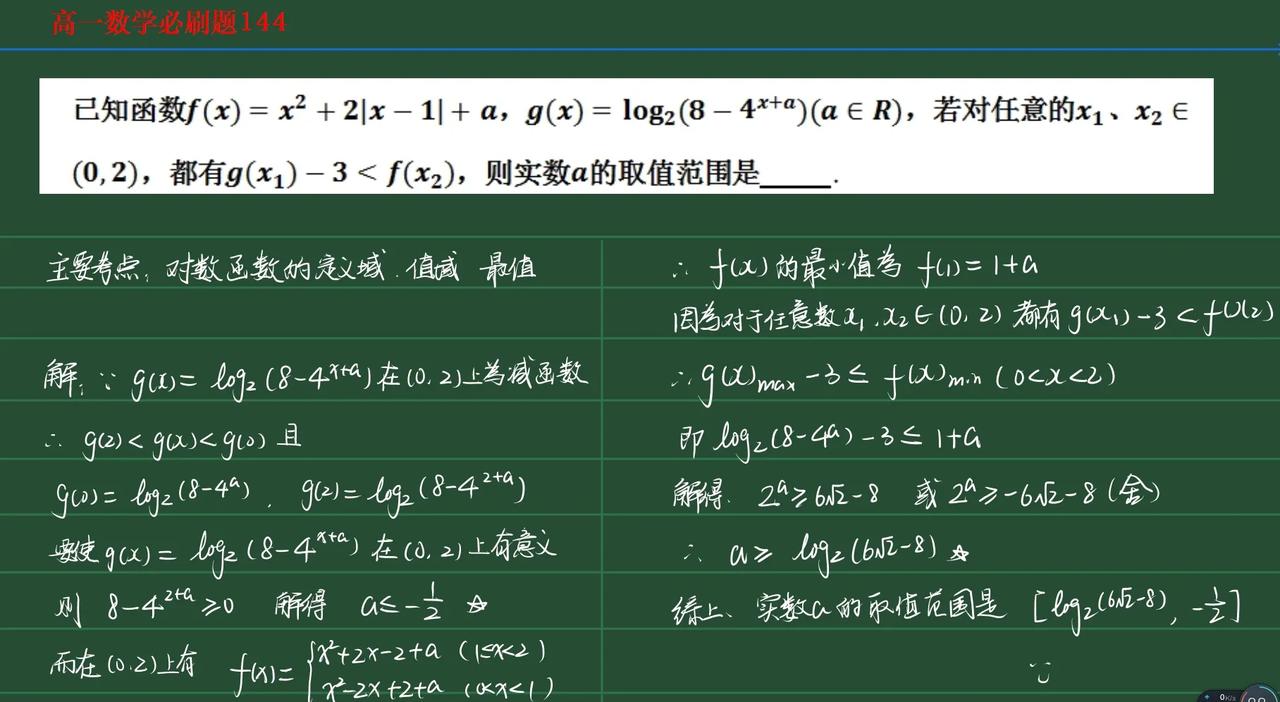 高一数学必刷题144
已知函数f(x) = x² + 2|x − 1| + a，g(x) = log₂(8 − 4ˣ⁺ᵃ)(a ∈ R)，若对任意的x₁、x₂ ∈
(0, 2)，都有g(x₁) − 3 < f(x₂)，则实数a的取值范围是_____.
主要考点：对数函数的定义域.值域 最值
解：∵ g(x) = log₂(8-4ˣ⁺ᵃ)在(0,2)上為减函数
∴ g(2)<g(x)<g(0) 且
g(0)=log₂(8-4ᵃ), g(2)=log₂(8-4²⁺ᵃ)
要使g(x)= log₂(8-4ˣ⁺ᵃ) 在(0,2)上有意义
则 8-4²⁺ᵃ ≥0 解得 a≤-1/2 ☆
而在(0,2)上有 f(x)= { x²+2x-2+a (1≤x<2)
x²-2x+2+a (0<x<1)
∴ f(x)的最小值為 f(1)=1+a
因為对于任意数x₁,x₂∈(0,2)都有g(x₁)-3<f(x₂)
∴ g(x)max -3 ≤ f(x)min (0<x<2)
即 log₂(8-4ᵃ)-3≤ 1+a
解得. 2ᵃ≥6√2-8 或 2ᵃ≥-6√2-8 (舍)
∴ a≥ log₂(6√2-8) ☆
综上、实数a的取值范围是 [log₂(6√2-8), -1/2]
0K/s